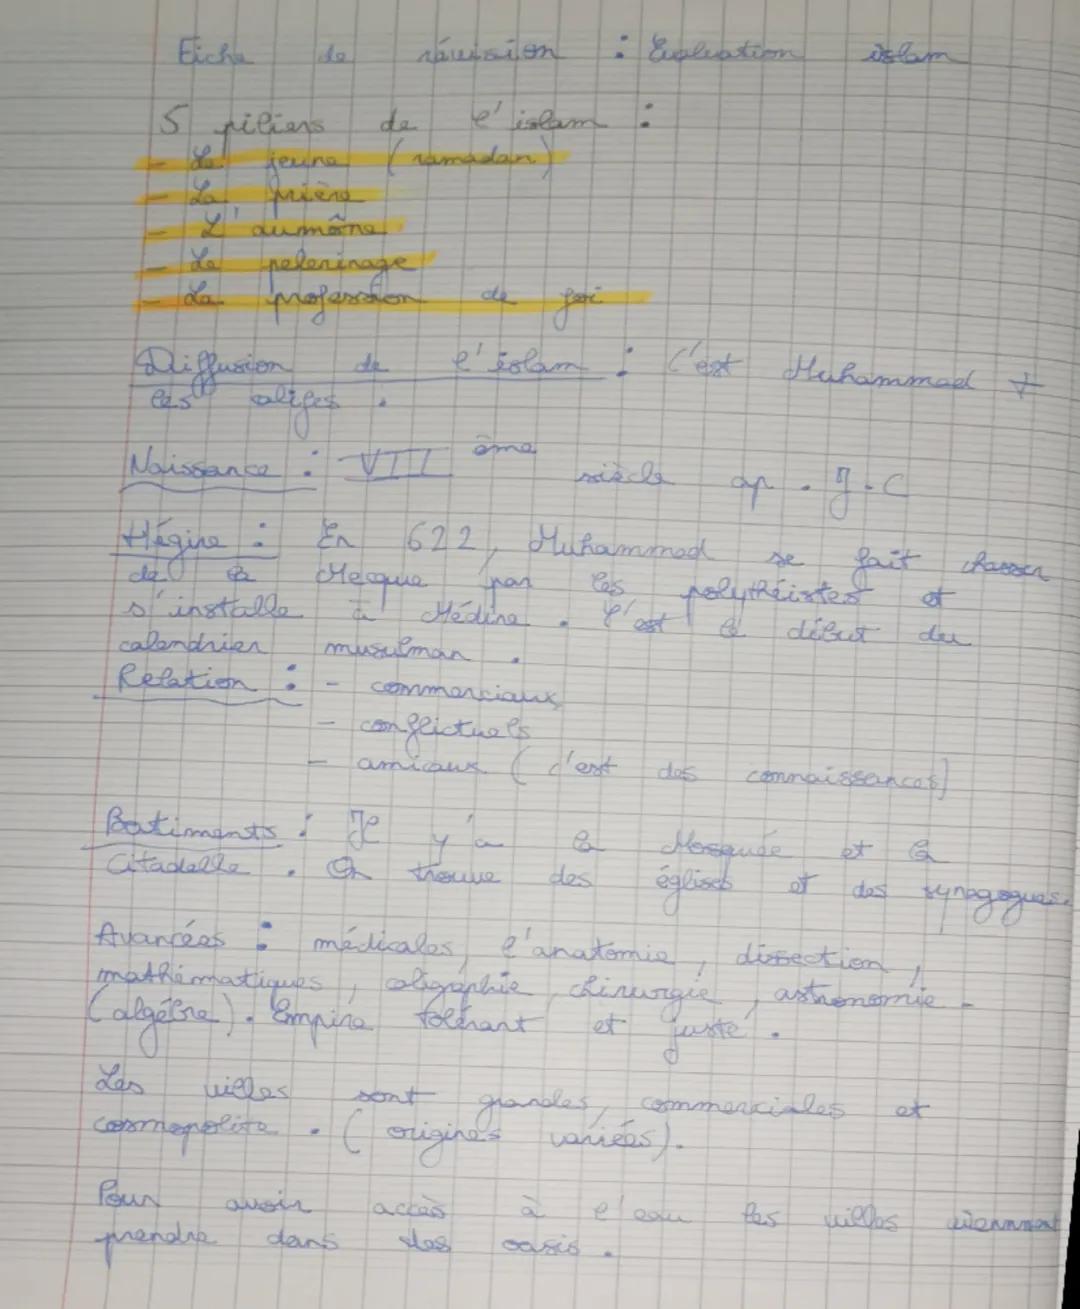 Fiche de révision : Evaluation islam
5 piliers de l'islam :
- Le jeune (ramadan)
- La prière
- L'aumône
- Le pelerinage
- La profession de foi
Diffusion de l'islam : C'est Muhammad +
les califes.
Naissance : VII ème siècle ap. J-C
Hégire : En 622, Muhammad se fait chasser
de la Mecque par les polythéistes et
s'installe à Médine. C'est le début du
calendrier musulman.
Relation : - commerciaux
- conflictuels
- amicaux (c'est des connaissances)
Batiments : Il y'a la Mosquée et la
Citadelle. On trouve des églises et des synagogues.
Avancées : médicales, l'anatomie, dissection,
mathématiques, caligraphie, chirurgie, astronomie -
(algébre). Empire tolérant et juste.
Les villes sont grandes, commerciales et
cosmopolite. (origines variées).
Pour avoir accès à l'eau les villes viennent
prendre dans les oasis.